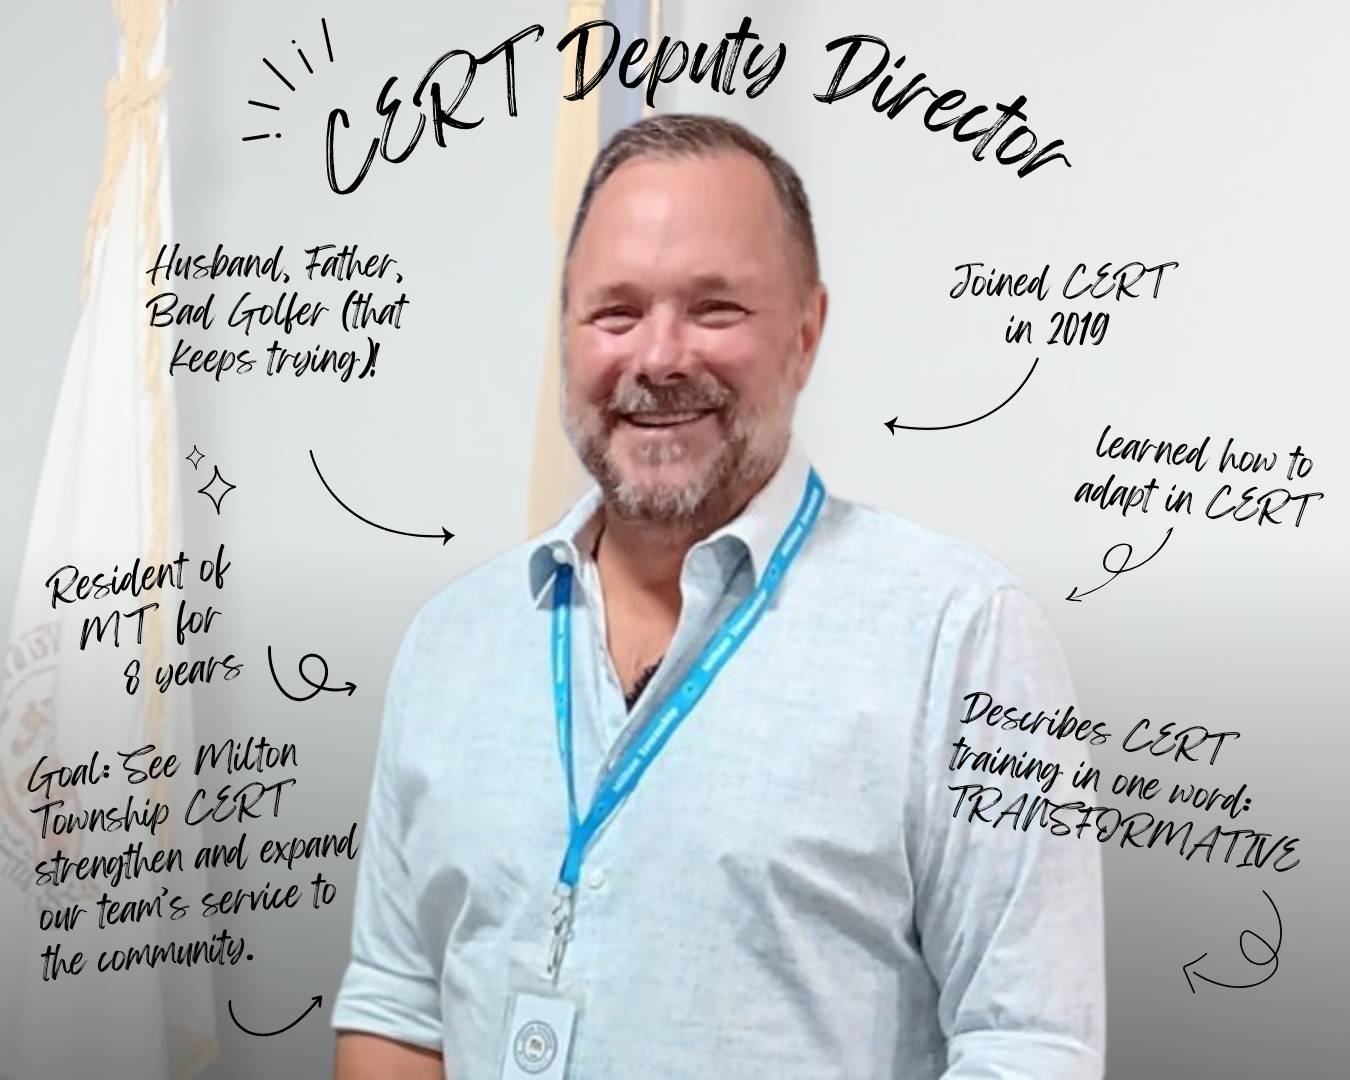 CERT Deputy Director
Husband, Father,
Bad Golfer (that
keeps trying)!
Joined CERT
in 2019
Learned how to
adapt in CERT
Resident of
MT for
8 years
Goal: See Milton
Township CERT
strengthen and expand
our team's service to
the community.
Describes CERT
training in one word:
TRANSFORMATIVE